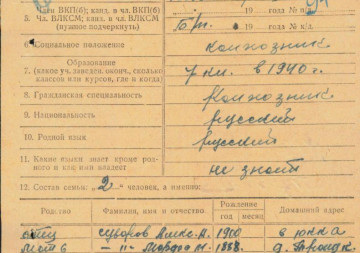 Член ВКП(б); канд. в чл. ВКП(б)
5. Чл. ВЛКСМ; канд. в чл. ВЛКСМ 19 года №п/д
(нужное подчеркнуть) 19 года №п/д
6. Социальное положение колхозник
7. Образование
(какое уч. заведен. оконч., сколько классов или курсов, где и когда) в 1940 г.
8. Гражданская специальность колхозник
9. Национальность русский
10. Родной язык русский
11. Какие языки знает кроме родного и как ими владеет не знает
12. Состав семьи: „2" человека, а именно:
Родство Фамилия, имя и отчество Рождение Домашний адрес
год месяц
отец Суворов Алек. А. 1900
мать —"— М. 1888